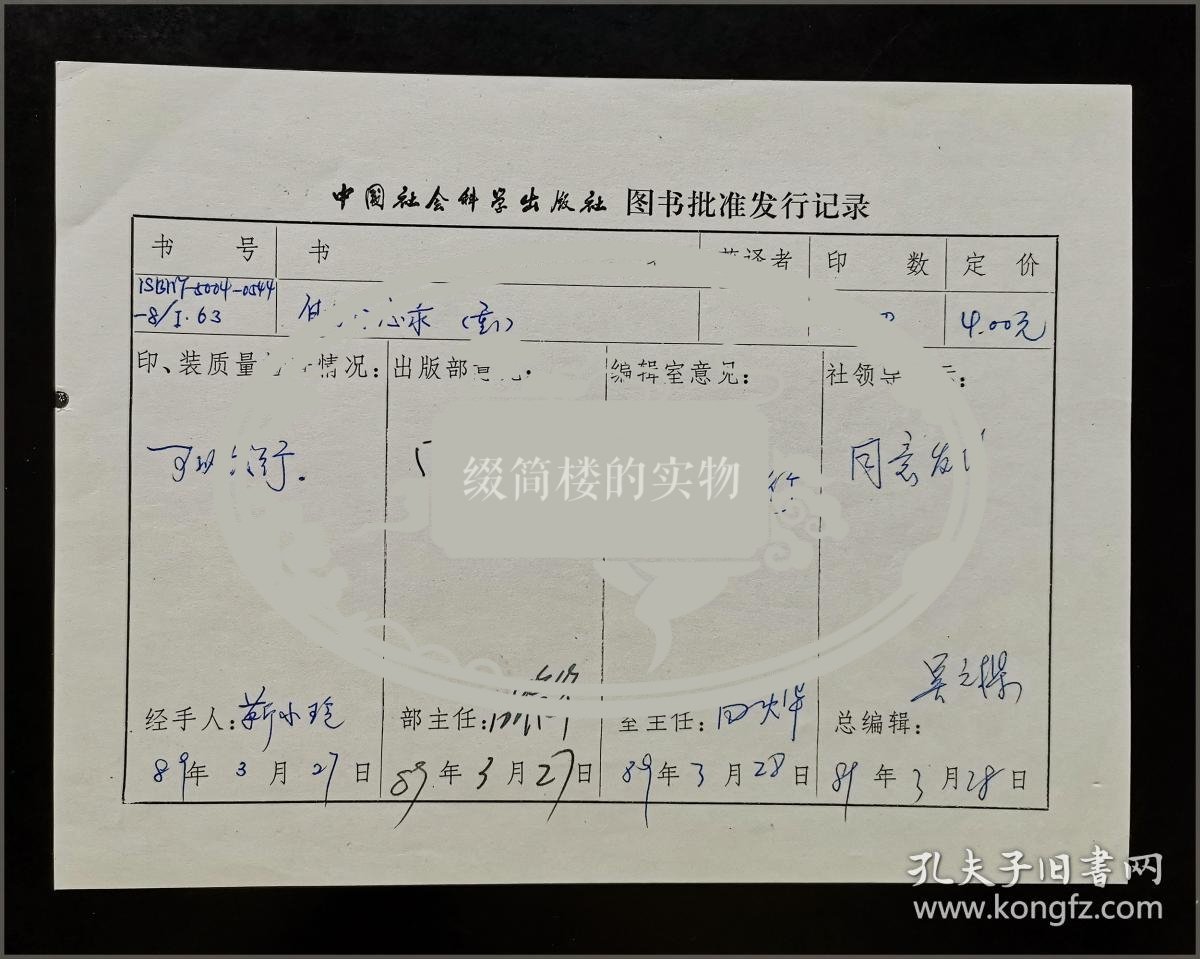 中国社会科学出版社 图书批准发行记录
书 号 书 著译者 印 数 定 价
ISBN7-5004-0544
-8/I·63 4.00元
印、装质量 情况: 出版部意见: 编辑室意见: 社领导 :
可以发行. 同意发行
缀简楼的实物
经手人:靳小 部主任: 室主任: 总编辑:
89年 3月 27日 89年 3月 27日 89年 3月 28日 89年 3月 28日
孔夫子旧书网
www.kongfz.com